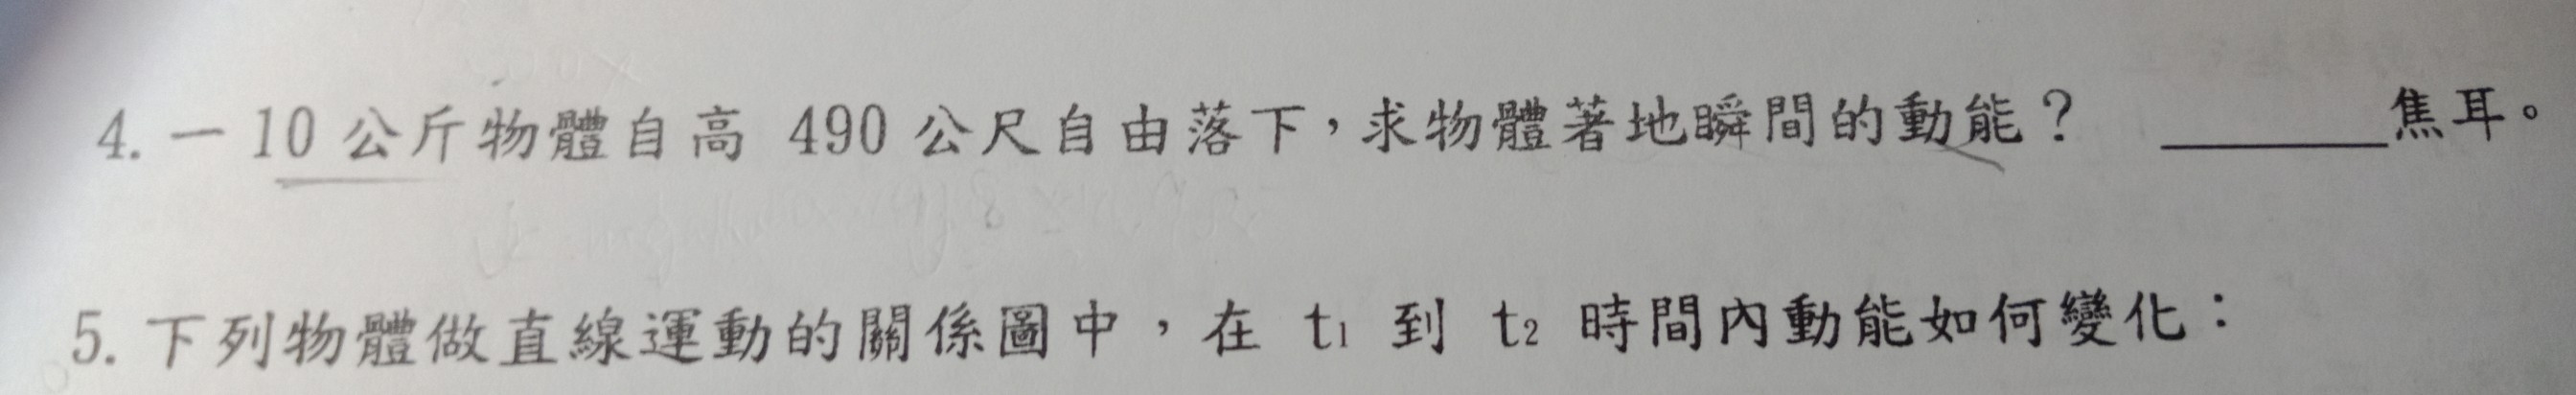 4. 一 10 公斤物體自高 490 公尺自由落下，求物體著地瞬間的動能？ ________焦耳。
5. 下列物體做直線運動的關係圖中，在 t₁ 到 t₂ 時間內動能如何變化：